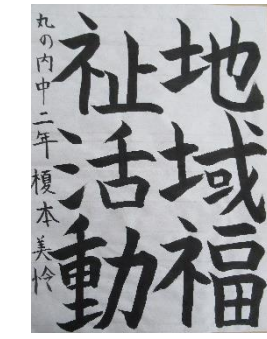 地域福
祉活動
丸の内中二年 榎本美怜